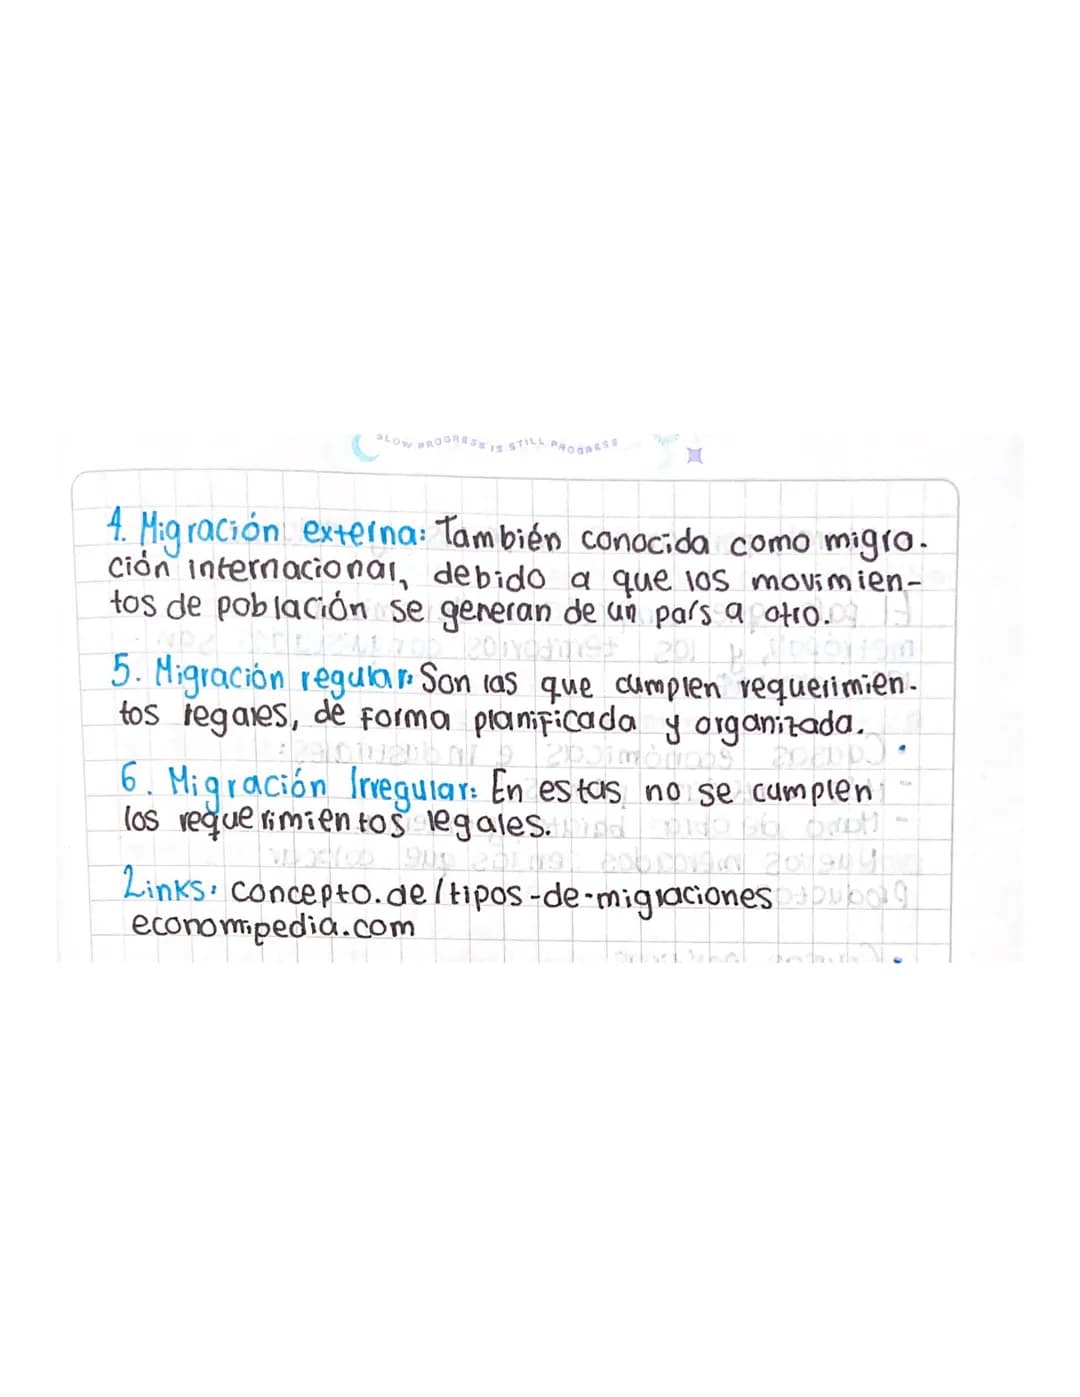 SLOW PROGRESS IS STILL PROGRESS
4. Migración externa: También conocida como migra-
ción internacional, debido a que los movimien-
tos de población se generan de un país a otro.
5. Migración regular: Son las que cumplen requerimien-
tos legales, de forma planificada y organizada.
6. Migración Irregular: En estas no se cumplen
los requerimientos legales.
Links: concepto.de/tipos-de-migraciones
economipedia.com